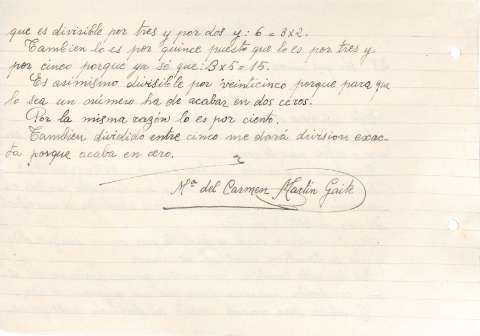 que es divisible por tres y por dos y: 6 = 3x2.
Tambien lo es por quince puesto que lo es por tres y
por cinco porque ya sé que: 3x5 = 15.
Es asimismo divisible por veinticinco porque para que
lo sea un número ha de acabar en dos ceros.
Por la misma razón lo es por ciento.
Tambien dividido entre cinco me dará division exac-
ta porque acaba en cero.
Mª del Carmen Martin Gaite